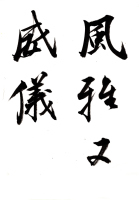 風雅又
威儀